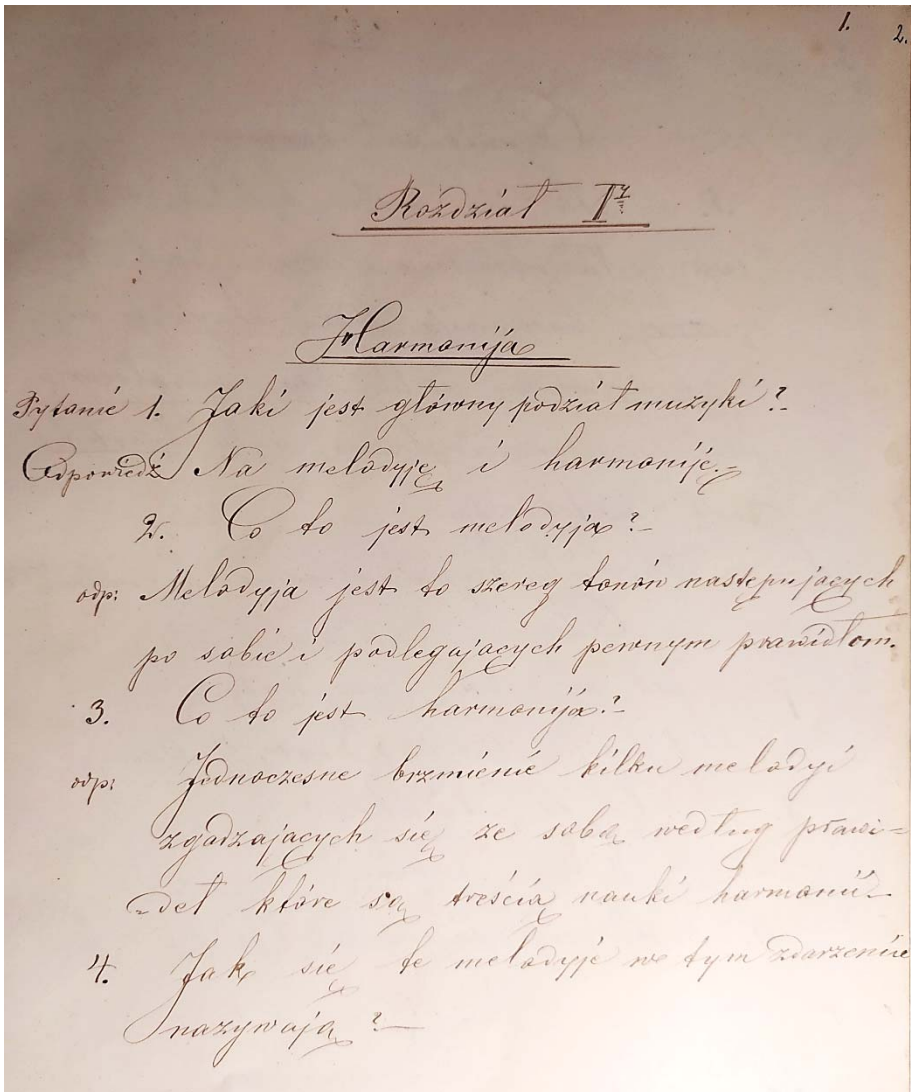 1. 2.
Rozdział Iy
Harmonija
Pytanie 1. Jaki jest główny podział muzyki?
Odpowiedź Na melodyję i harmoniję.
2. Co to jest melodyja?
odp: Melodyja jest to szereg tonów następujących
po sobie i podlegających pewnym prawidłom.
3. Co to jest harmonija?
odp: Jednoczesne brzmienie kilku melodyi
zgadzających się ze sobą według prawi=
=deł które są treścią nauki harmonii
4. Jak się te melodyje we tym zdarzeniu
nazywają?